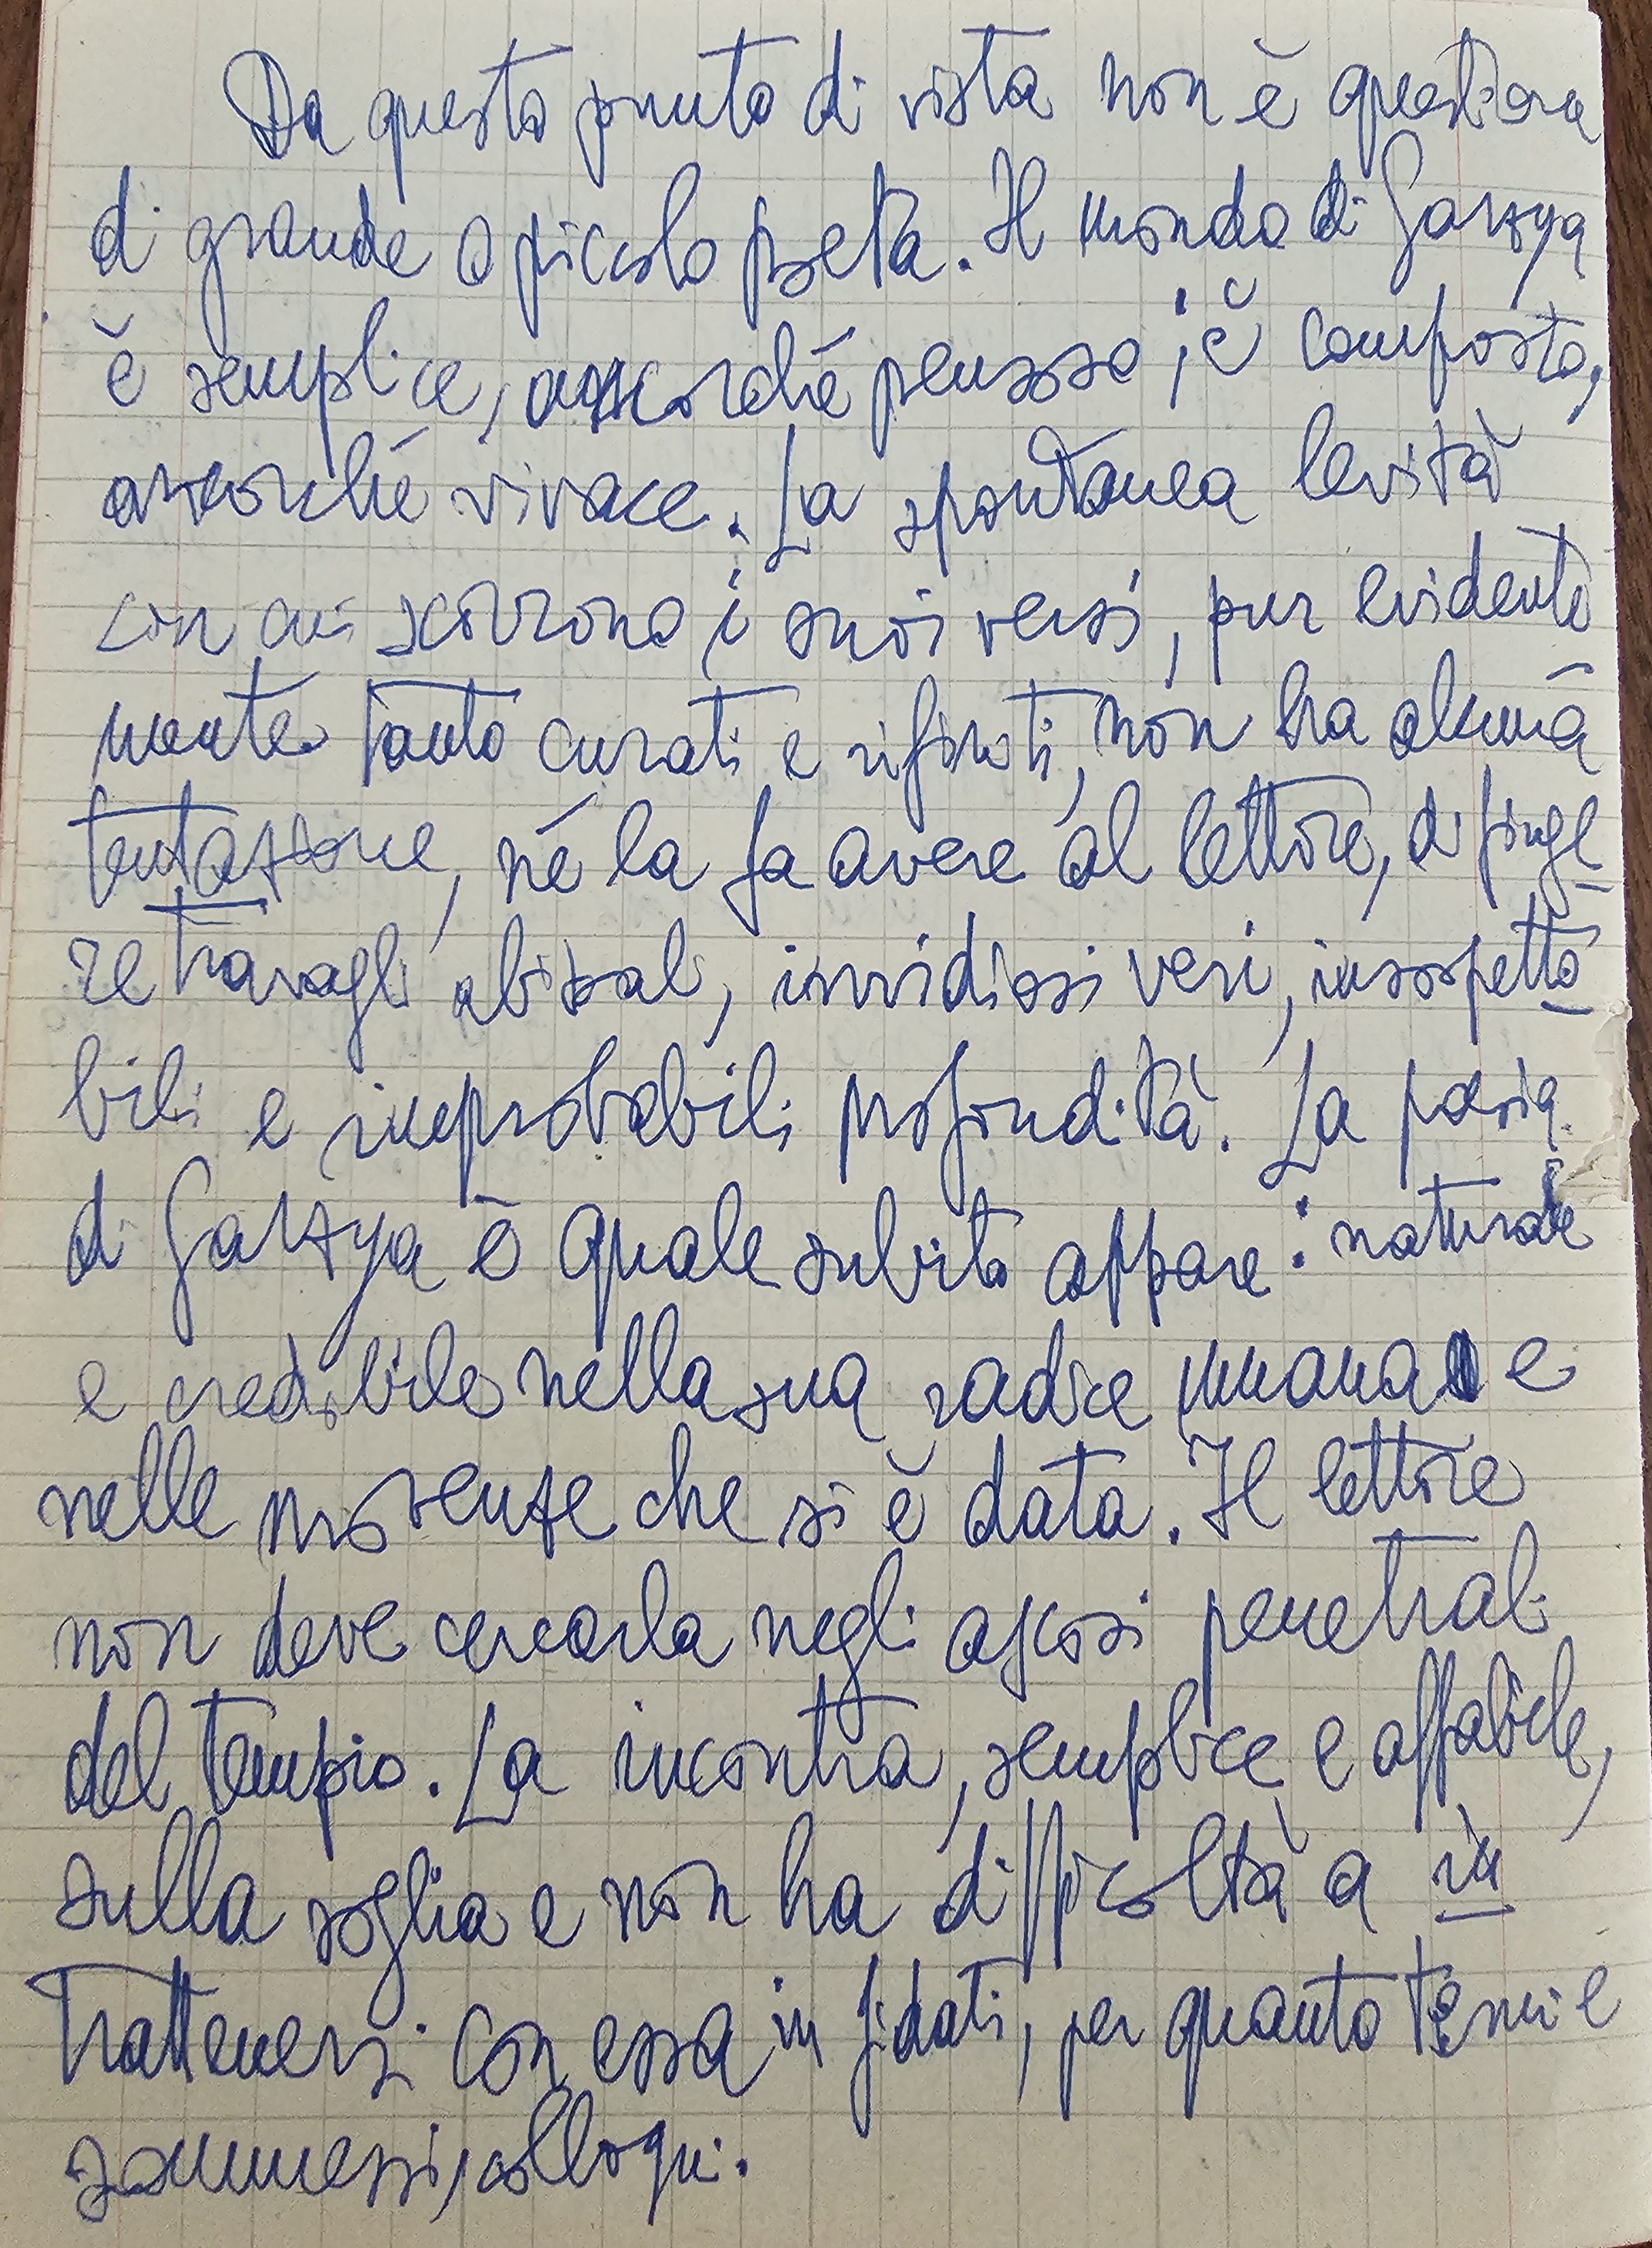 Da questo punto di vista non è questione
di grande o piccolo poeta. Il mondo di Garzya
è semplice, ancorché pensoso; è composto,
ancorché vivace. La spontanea levità
con cui scorrono i suoi versi, pur evidente
mente tanto curati e rifiniti, non ha alcuna
tentazione, né la fa avere al lettore, di finge
re travagli abissali, invidiosi veri, insospetta
bili e improbabili profondità. La poesia
di Garzya è quale subito appare: naturale
e credibile nella sua radice umana e
nelle movenze che si è data. Il lettore
non deve cercarla negli ascosi penetrali
del tempio. La incontra, semplice e affabile,
sulla soglia e non ha difficoltà a in
trattenersi con essa in fidati, per quanto tenui e
sommessi, colloqui.